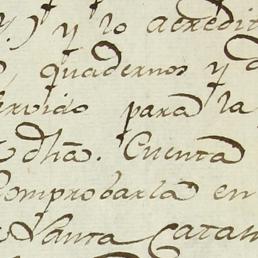 y lo acredit
quadernos y
ervido para la
dha. Cuenta
comprobarla en
Santa Catan